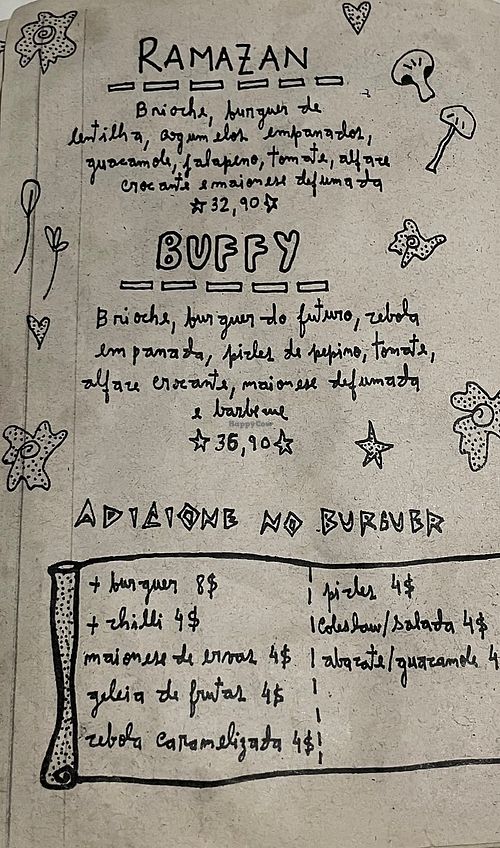 RAMAZAN
Brioche, burguer de
lentilha, cogumelos empanados,
guacamole, jalapeno, tomate, alface
crocante e maionese defumada
☆32,90☆
BUFFY
Brioche, burguer do futuro, cebola
empanada, picles de pepino, tomate,
alface crocante, maionese defumada
e barbecue
HappyCow
☆36,90☆
ADICIONE NO BURGUER
+ burguer 8$
+ chilli 4$
maionese de ervas 4$
geleia de frutas 4$
cebola caramelizada 4$
picles 4$
coleslaw/salada 4$
abacate/guacamole 4